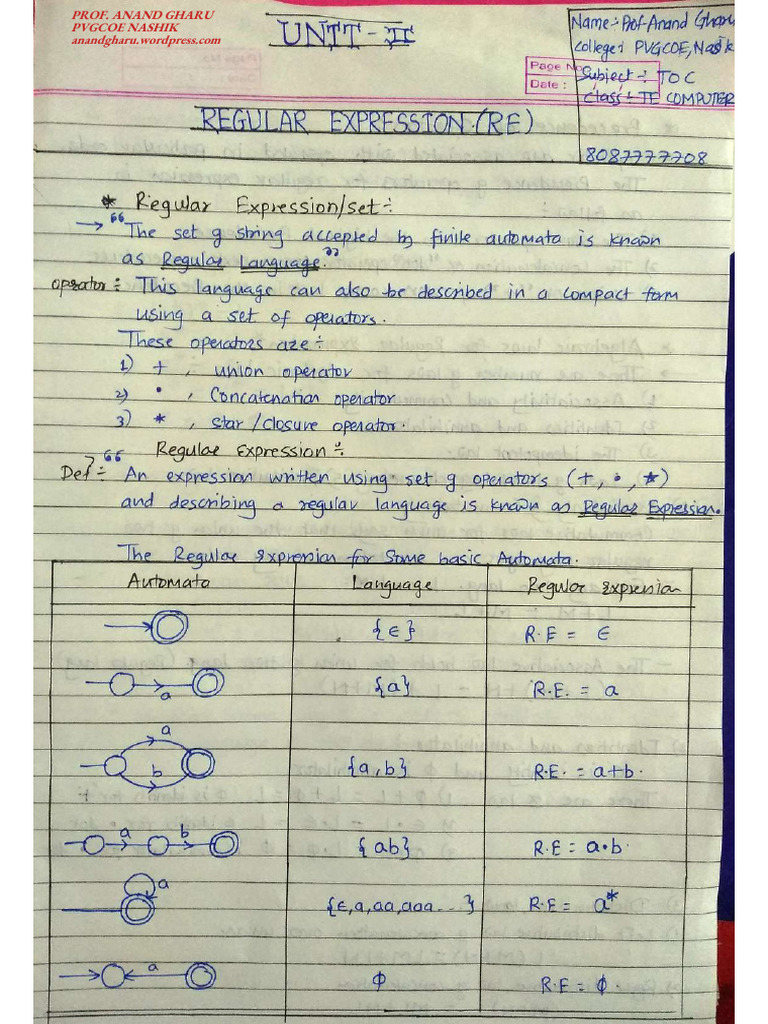 PROF. ANAND GHARU
PVGCOE NASHIK
anandgharu.wordpress.com
UNIT - II
Name:- Prof. Anand Gharu
college: PVGCOE, Nashik
Page No.
Date :
Subject :- TOC
Class :- TE COMPUTER
8087777708
REGULAR EXPRESSION.(RE)
* Regular Expression/set:-
→ "The set of string accepted by finite automata is known
as Regular Language."
operator:- This language can also be described in a compact form
using a set of operators.
These operators are:-
1) + , union operator
2) • , Concatenation operator
3) * , star/closure operator.
Regular Expression:-
Def:- "An expression written using set of operators (+, •, *)
and describing a regular language is known as Regular Expression.
The Regular Expression for Some basic Automata.
Automata Language Regular Expression
{ε} R.E = ε
a {a} R.E. = a
a b {a,b} R.E. = a+b.
a b {ab} R.E = a•b.
a {ε,a,aa,aaa...} R.E = a*
a ϕ R.E = ϕ.